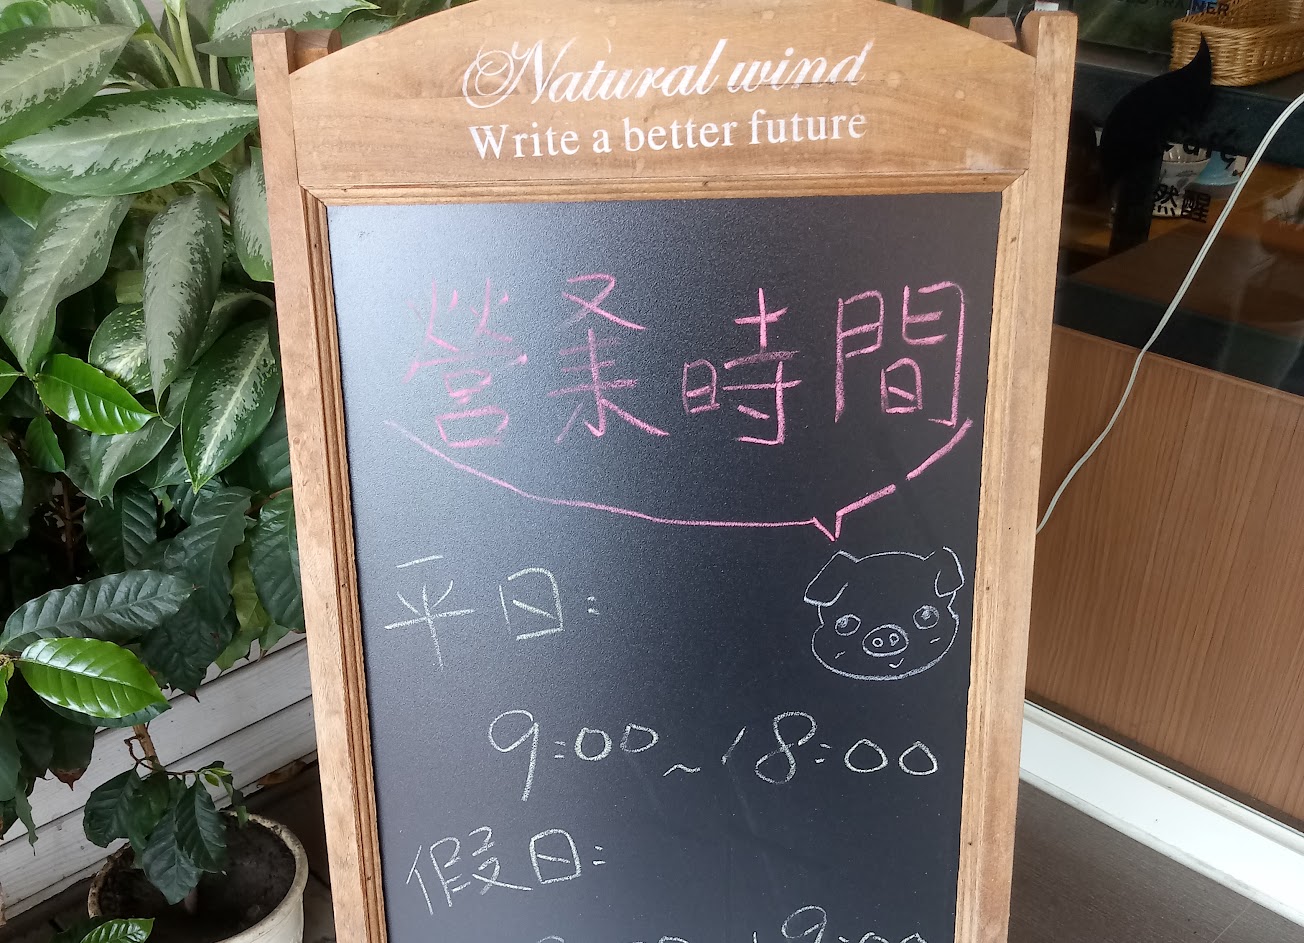 Natural wind
Write a better future
營業時間
平日:
9:00~18:00
假日:
TRAINER
Café
然醒